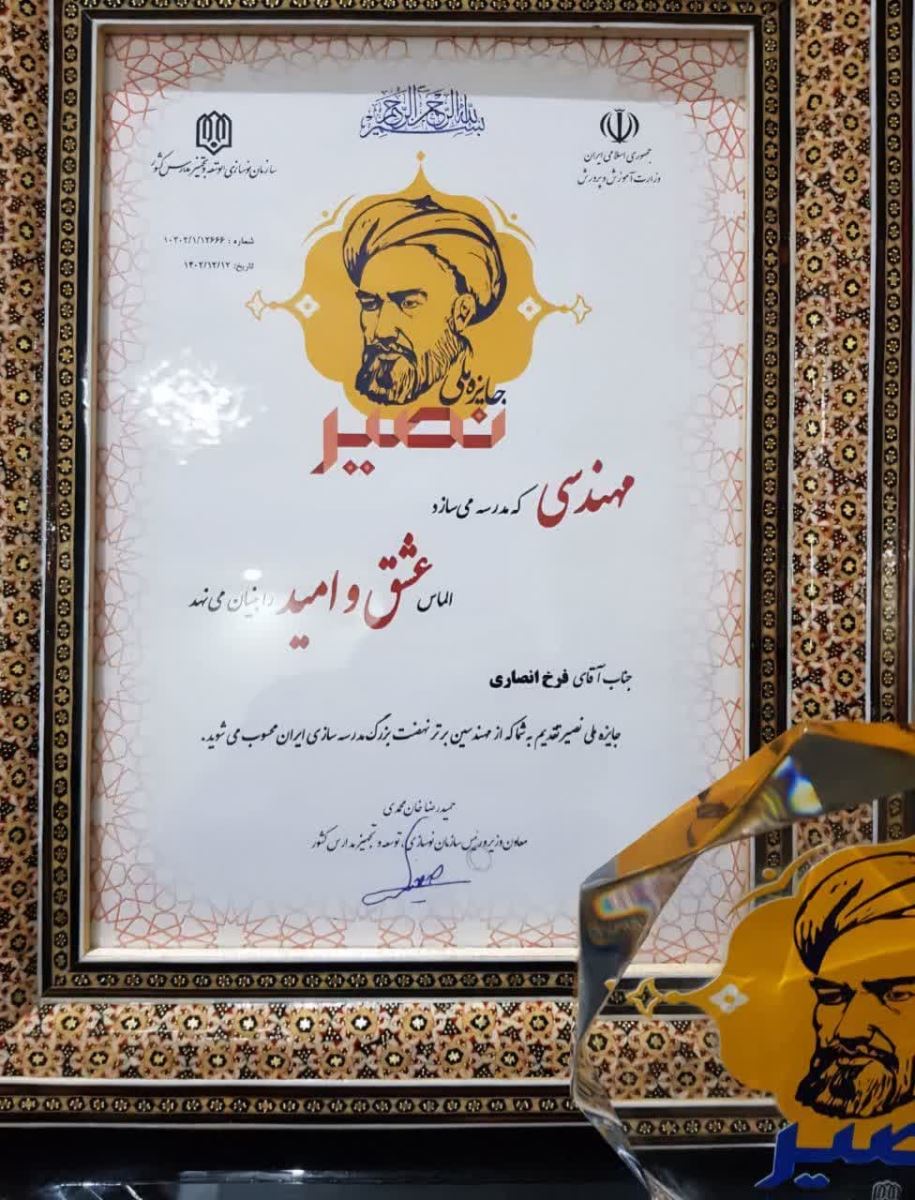 بسم الله الرحمن الرحیم
جمهوری اسلامی ایران
وزارت آموزش و پرورش
سازمان نوسازی، توسعه و تجهیز مدارس کشور
شماره : ۱۰۳۰۲/۱/۱۲۶۶۶
تاریخ: ۱۴۰۲/۱۲/۱۲
جایزه ملی
نصیر
مهندسی که مدرسه می سازد
الماس عشق و امید را بنیان می نهد
جناب آقای فرخ انصاری
جایزه ملی نصیر تقدیم به شما که از مهندسین برتر نهضت بزرگ مدرسه سازی ایران محسوب می شوید.
حمیدرضا خان محمدی
معاون وزیر و رئیس سازمان نوسازی، توسعه و تجهیز مدارس کشور
نصیر